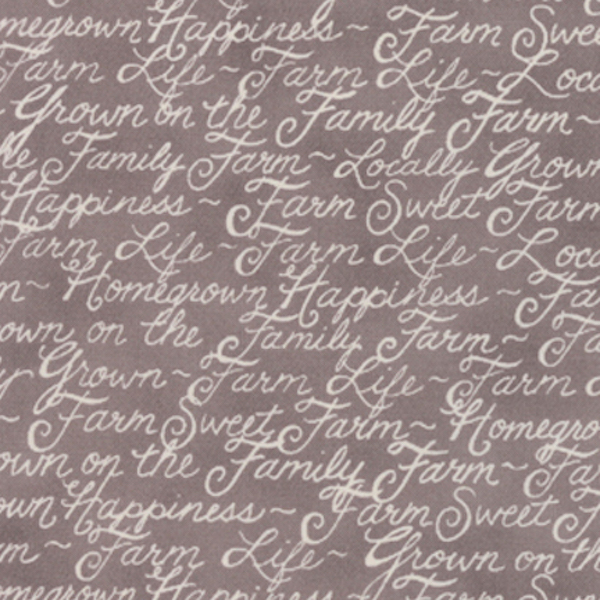 megrown Happiness ~ Farm Swee
Farm Life ~ Farm Life ~ Loca
Grown on the Family Farm ~
he Family Farm ~ Locally Grown
Happiness ~ Farm Sweet Farm
Farm Life ~ Farm Life ~ Loca
m ~ Homegrown Happiness ~ Fa
own on the Family Farm ~ Fa
y Grown ~ Farm Life ~ Farm
~ Farm Sweet Farm ~ Homegro
own on the Family Farm ~ Fa
own Happiness ~ Farm Sweet F
m ~ Farm Life ~ Grown on th
megrown Happiness ~ Farm